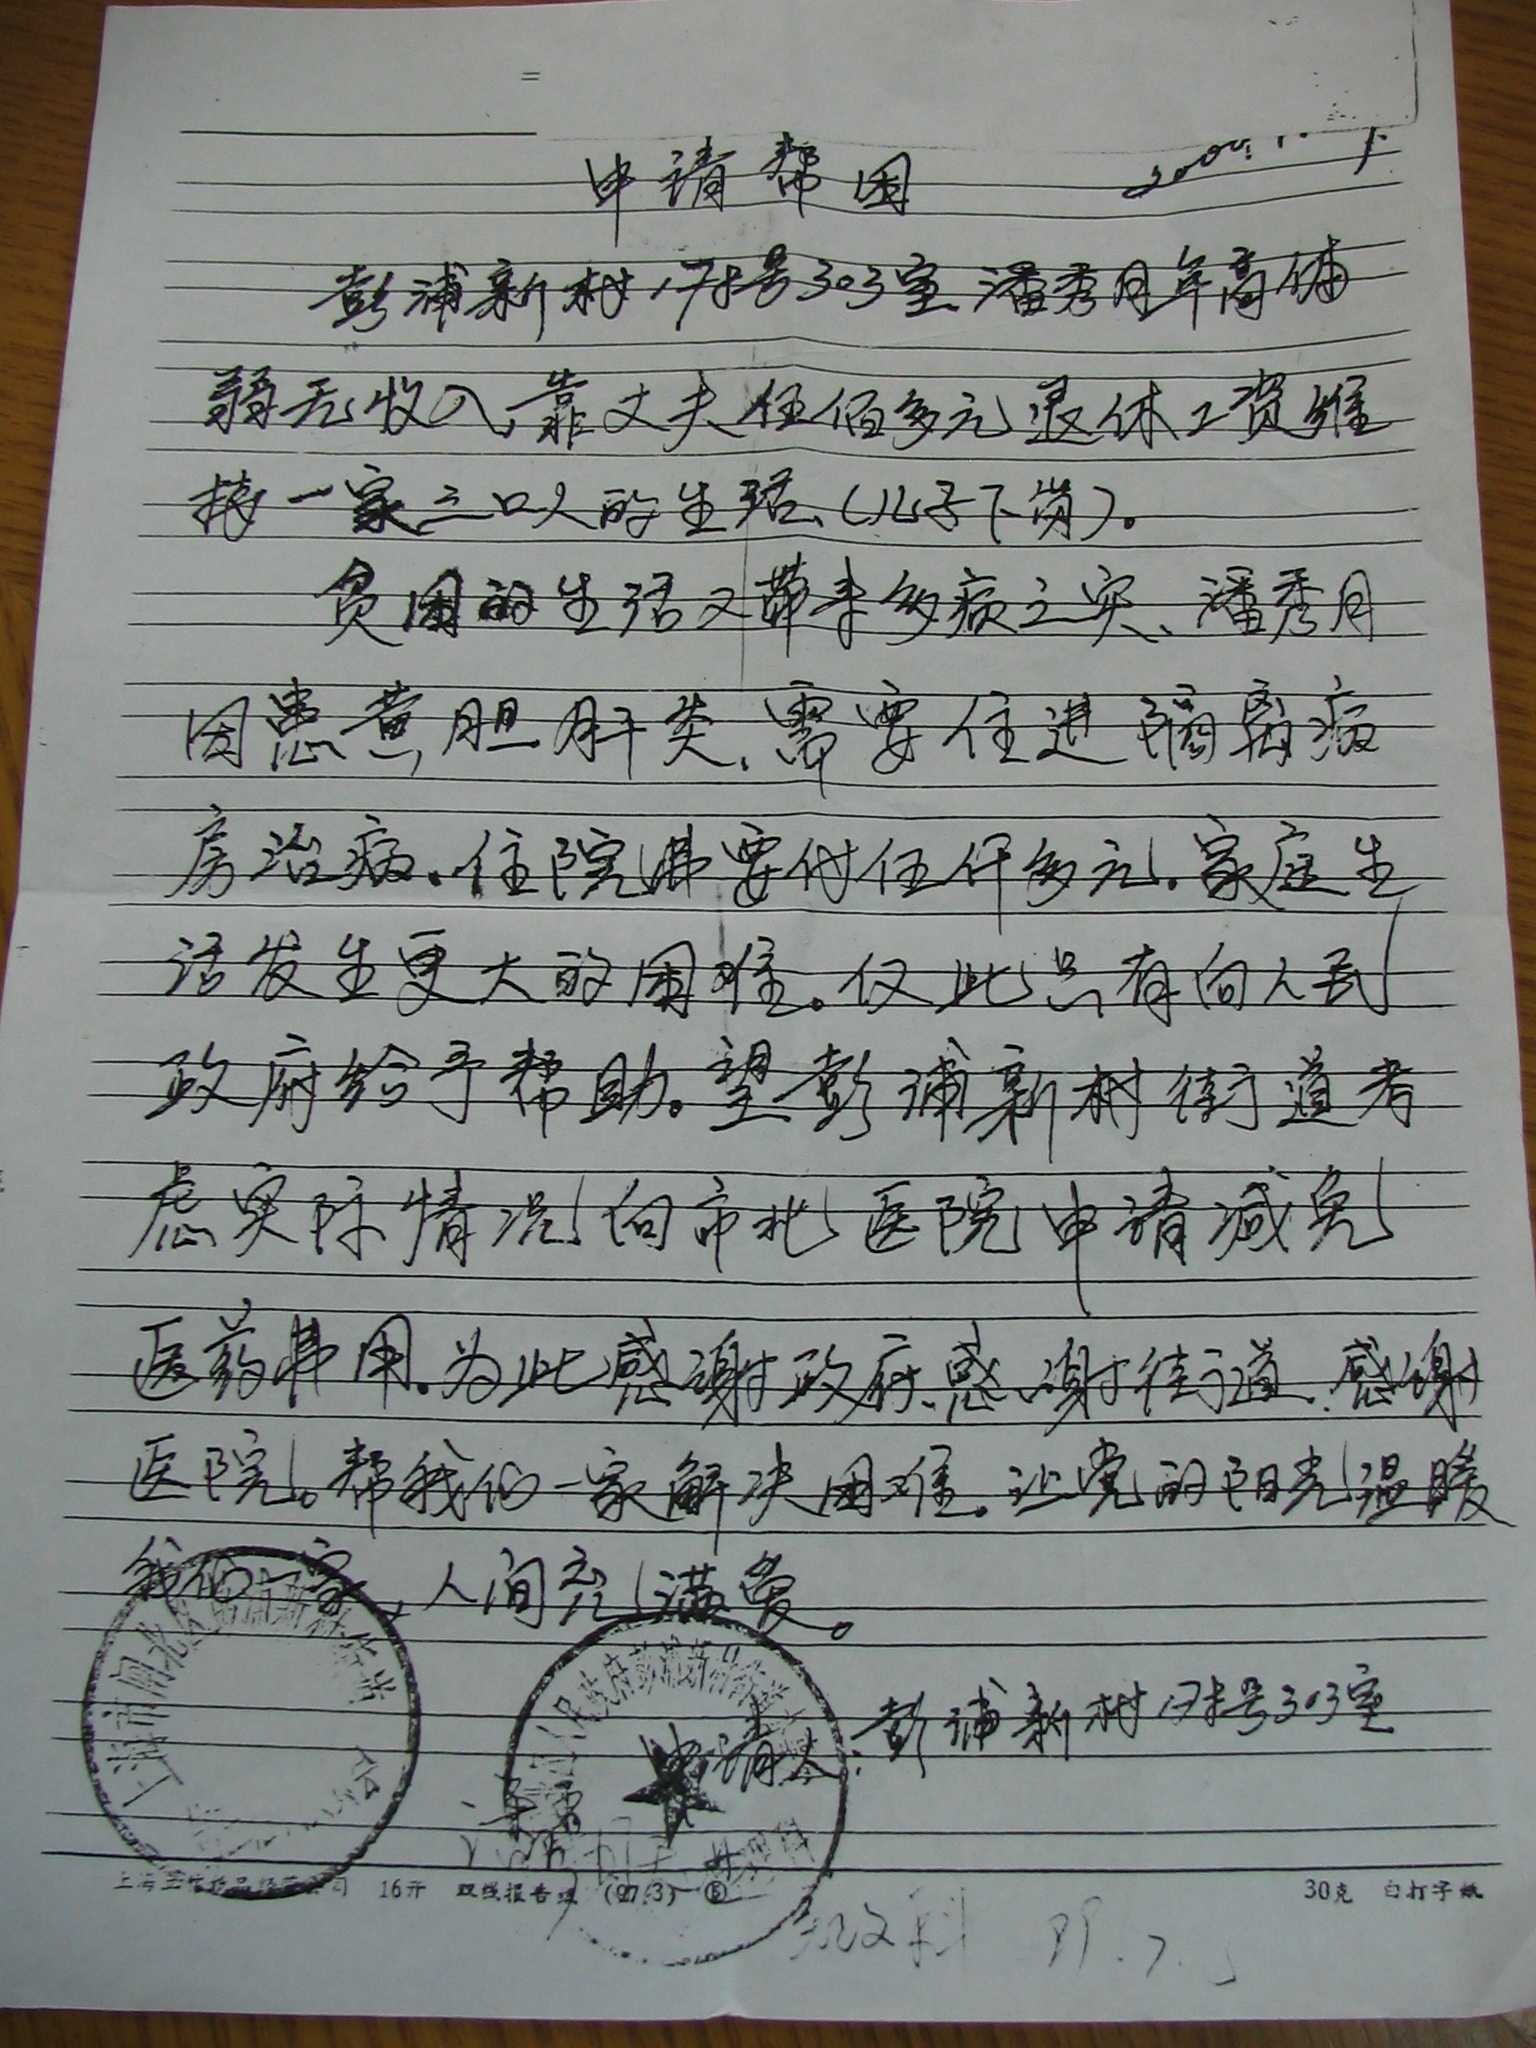 申请帮困
彭浦新村175号303室潘秀月年高体
弱无收入，靠丈夫伍佰多元退休工资维
持一家三口人的生活、(儿子下岗)。
贫困的生活又带来多病之灾、潘秀月
因患黄胆肝炎、需要住进隔离病
房治病.住院费要付伍仟多元.家庭生
活发生更大的困难。仅此只有向人民
政府给予帮助。望彭浦新村街道考
虑实际情况向市北医院申请减免
医药费用.为此感谢政府、感谢街道、感谢
医院。帮我们一家解决困难.让党的阳光温暖
我们一家、人间充满爱。
申请人:彭浦新村175号303室
16开 双线报告纸 (97.3)
30克 白打字纸
99.7.5